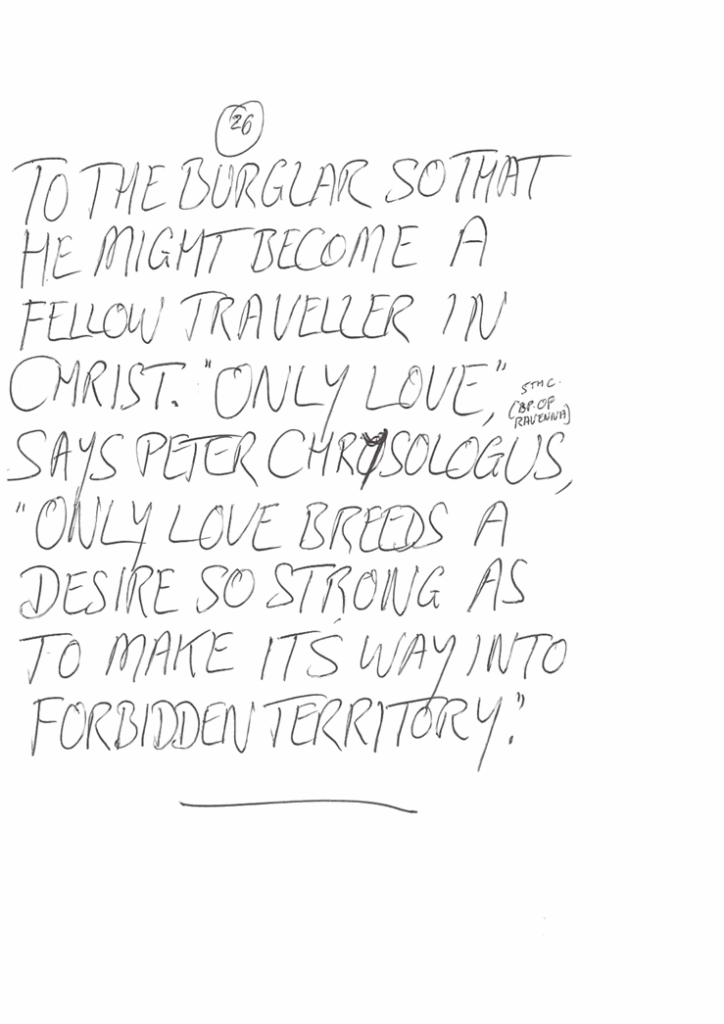 26
TO THE BURGLAR SO THAT
HE MIGHT BECOME A
FELLOW TRAVELLER IN
CHRIST. "ONLY LOVE",
5TH C.
(BP. OF
RAVENNA)
SAYS PETER CHRYSOLOGUS,
"ONLY LOVE BREEDS A
DESIRE SO STRONG AS
TO MAKE ITS WAY INTO
FORBIDDEN TERRITORY."